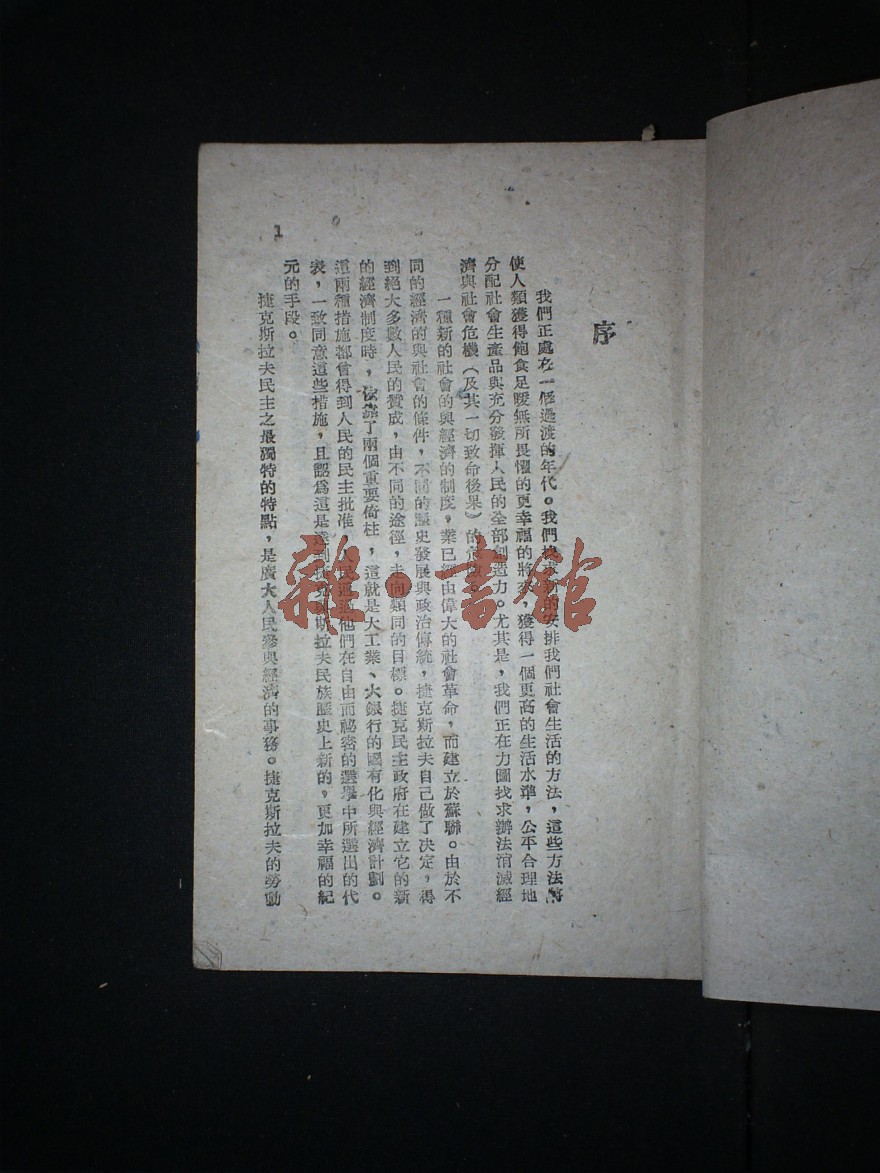 序
我們正處在一個過渡的年代。我們 的安排我們社會生活的方法，這些方法將
使人類獲得飽食足暖無所畏懼的更幸福的將來，獲得一個更高的生活水準，公平合理地
分配社會生產品與充分發揮人民的全部創造力。尤其是，我們正在力圖找求辦法消滅經
濟與社會危機（及其一切致命後果）的
一種新的社會的與經濟的制度，業已經由偉大的社會革命，而建立於蘇聯。由於不
同的經濟的與社會的條件，不同的歷史發展與政治傳統，捷克斯拉夫自己做了決定，得
到絕大多數人民的贊成，由不同的途徑，走向類同的目標。捷克民主政府在建立它的新
的經濟制度時，依靠了兩個重要倚柱，這就是大工業、大銀行的國有化與經濟計劃。
這兩種措施都曾得到人民的民主批准，人民通過他們在自由而祕密的選舉中所選出的代
表，一致同意這些措施，且認爲這是達到捷克斯拉夫民族歷史上新的，更加幸福的紀
元的手段。
捷克斯拉夫民主之最獨特的特點，是廣大人民參與經濟的事務。捷克斯拉夫的勞動
1
雜·書館